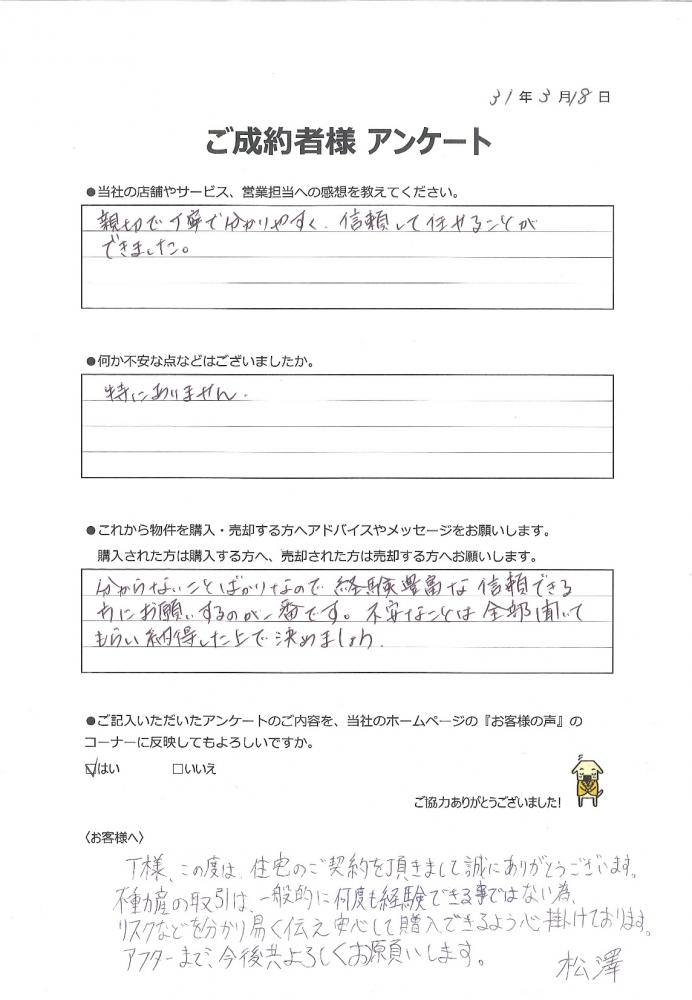 31年3月18日
ご成約者様 アンケート
●当社の店舗やサービス、営業担当への感想を教えてください。
親切で丁寧で分かりやすく、信頼して任せることが
できました。
●何か不安な点などはございましたか。
特にありません.
●これから物件を購入・売却する方へアドバイスやメッセージをお願いします。
購入された方は購入する方へ、売却された方は売却する方へお願いします。
分からないことばかりなので 経験豊富な 信頼できる
方にお願いするのが一番です。不安なことは全部聞いて
もらい納得した上で決めましょう.
●ご記入いただいたアンケートのご内容を、当社のホームページの『お客様の声』の
コーナーに反映してもよろしいですか。
☑はい □いいえ
ご協力ありがとうございました!
〈お客様へ〉
T様、この度は、住宅のご契約を頂きまして誠にありがとうございます。
不動産の取引は、一般的に何度も経験できる事ではない為、
リスクなどを分かり易く伝え安心して購入できるよう心掛けております。
アフターまで、今後共よろしくお願いします。 松澤